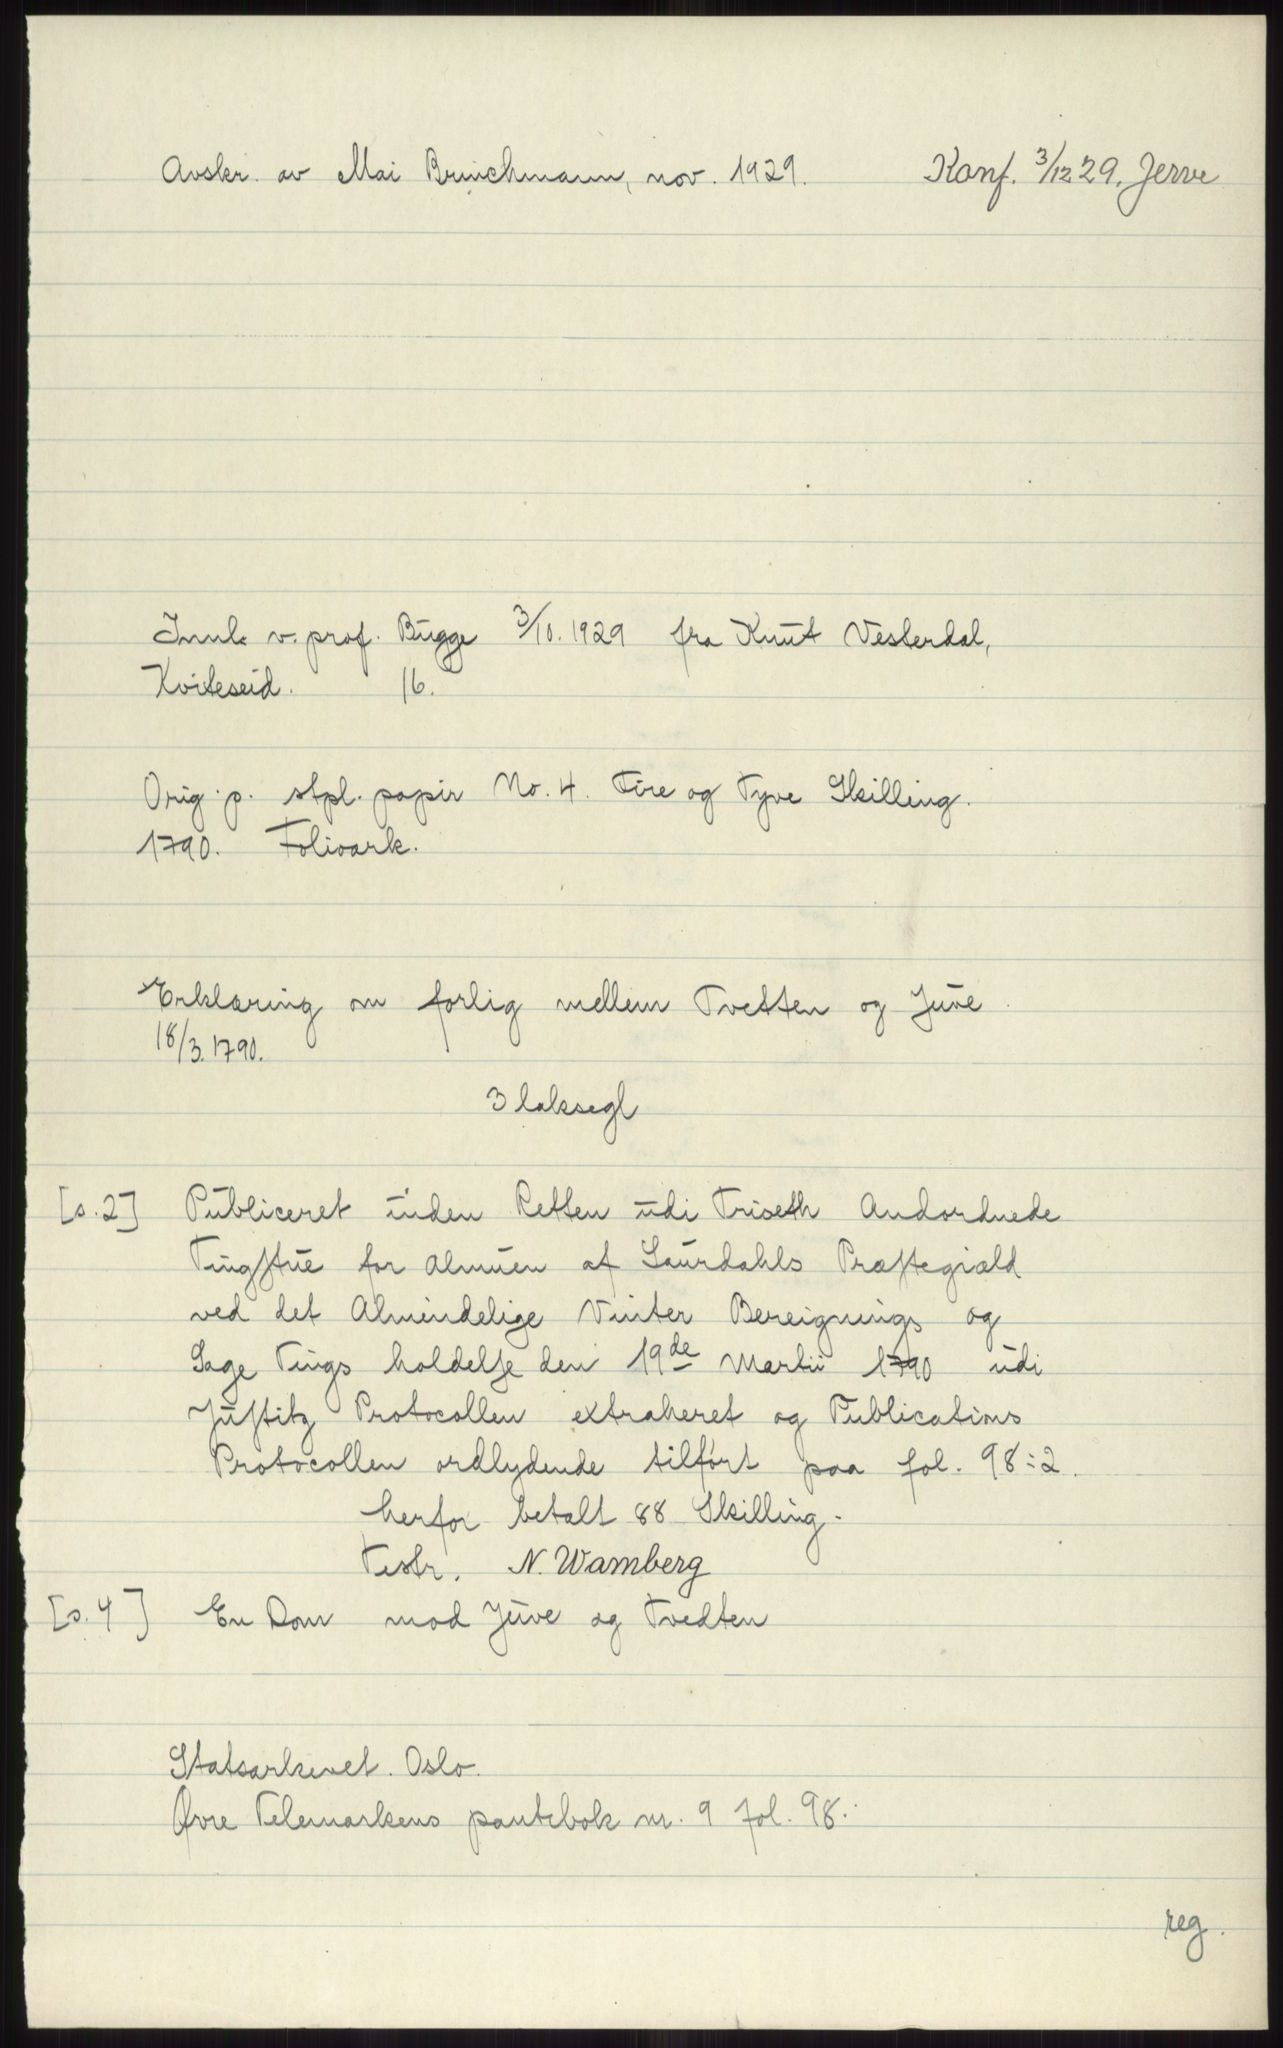 Avskr. av Mai Brinchmann, nov. 1929. Konf. 3/12 29. Jerve
Innl. v. prof. Bugge 3/10. 1929 fra Knut Vesterdal,
Kviteseid. 16.
Orig. p. stpl. papir No. 4. Fire og Tyve Skilling.
1790. Folioark.
Erklæring om forlig mellem Tvetten og Juve
18/3. 1790.
3 laksegl
[s. 2] Publiceret inden Retten udi Triseth Andordnede
Tingstue for Almuen af Laurdahls Præstegiæld
ved det Almindelige Vinter Bereignings og
Sage Tings holdelse den 19de Martii 1790 udi
Justitz Protocollen extraheret og Publications
Protocollen ordlydende tilført paa fol. 98:2.
herfor betalt 88 Skilling.
Testr. N. Wamberg
[s. 4] En Dom mod Juve og Tvedten
Statsarkivet. Oslo.
Øvre Telemarkens pantebok nr. 9 fol. 98:
reg.